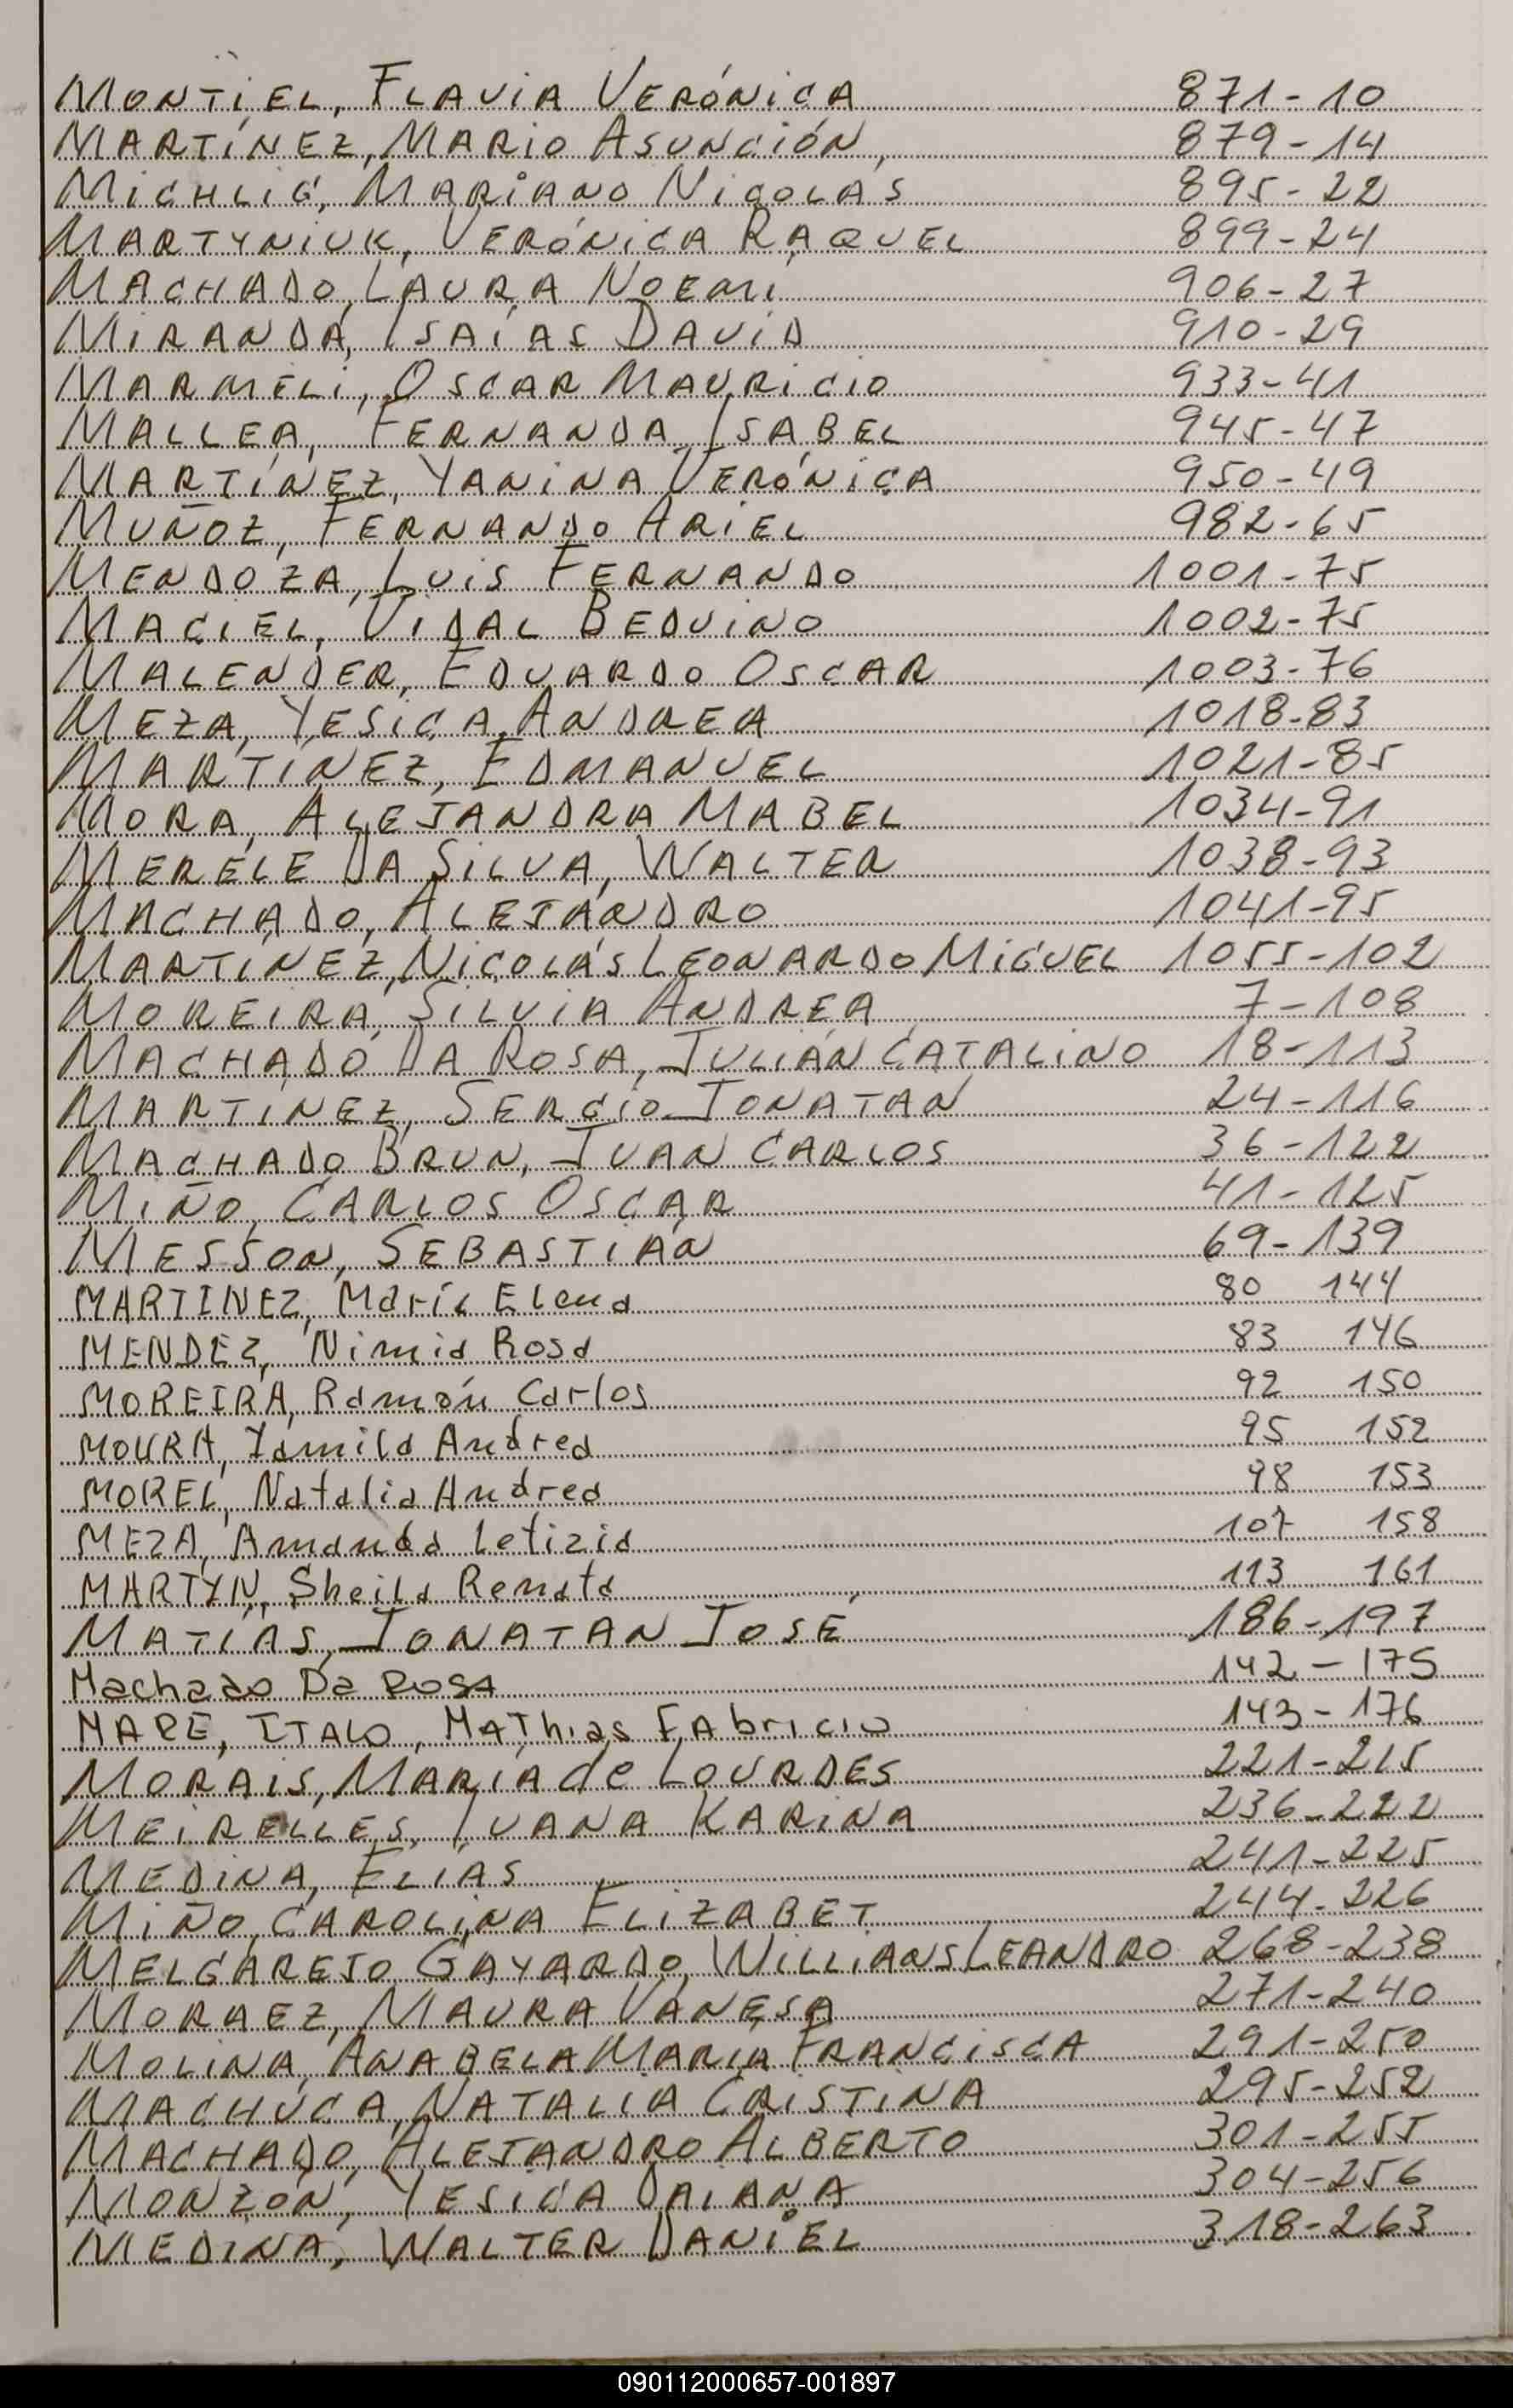 MONTIEL, FLAVIA VERÓNICA 871-10
MARTÍNEZ, MARIO ASUNCIÓN, 879-14
MICHLIG, MARIANO NICOLÁS 895-22
MARTYNIUK, VERÓNICA RAQUEL 899-24
MACHADO, LAURA NOEMÍ 906-27
MIRANDA, ISAÍAS DAVID 910-29
MARMELI, OSCAR MAURICIO 933-41
MALLEA, FERNANDA ISABEL 945-47
MARTÍNEZ, YANINA VERÓNICA 950-49
MUÑOZ, FERNANDO ARIEL 982-65
MENDOZA, LUIS FERNANDO 1001-75
MACIEL, VIDAL BEDUINO 1002-75
MALENDER, EDUARDO OSCAR 1003-76
MEZA, YESICA ANDREA 1018-83
MARTÍNEZ, EDMANUEL 1021-85
MORA, ALEJANDRA MABEL 1034-91
MERELE DA SILVA, WALTER 1038-93
MACHADO, ALEJANDRO 1041-95
MARTÍNEZ, NICOLÁS LEONARDO MIGUEL 1055-102
MOREIRA, SILVIA ANDREA 7-108
MACHADO DA ROSA, JULIÁN CATALINO 18-113
MARTINEZ, SERGIO JONATAN 24-116
MACHADO BRUN, JUAN CARLOS 36-122
MIÑO, CARLOS OSCAR 41-125
MESSON, SEBASTIÁN 69-139
MARTINEZ, María Elena 80 144
MENDEZ, Nimia Rosa 83 146
MOREIRA, Ramón Carlos 92 150
MOURA, Yamila Andrea 95 152
MOREL, Natalia Andrea 98 153
MEZA, Amanda Letizia 107 158
MARTYN, Sheila Renata 113 161
MATÍAS, JONATAN JOSÉ 186-197
Machado Da Rosa 142-175
MARE, ITALO, MATHias FAbricio 143-176
MORAIS, MARÍA de LOURDES 221-215
MEIRELLES, IVANA KARINA 236-222
MEDINA, ELÍAS 241-225
MIÑO, CAROLINA ELIZABET 244-226
MELGAREJO GAYARDO, WILLIANS LEANDRO 268-238
MORAEZ, MAURA VANESA 271-240
MOLINA, ANABELA MARÍA FRANCISCA 291-250
MACHUCA, NATALIA CRISTINA 295-252
MACHADO, ALEJANDRO ALBERTO 301-255
MONZÓN, YESICA DAIANA 304-256
MEDINA, WALTER DANIEL 318-263
090112000657-001897